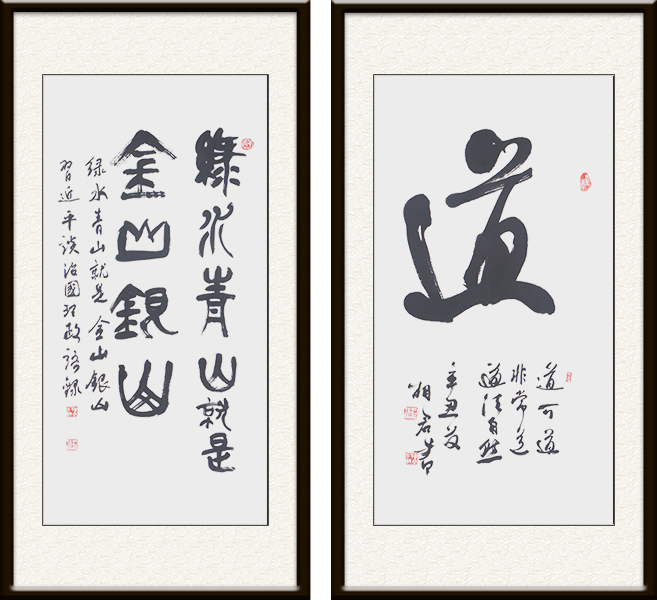 綠水青山就是
金山銀山
绿水青山就是金山銀山
習近平談治國理政語錄
道
道可道
非常道
道法自然
辛丑